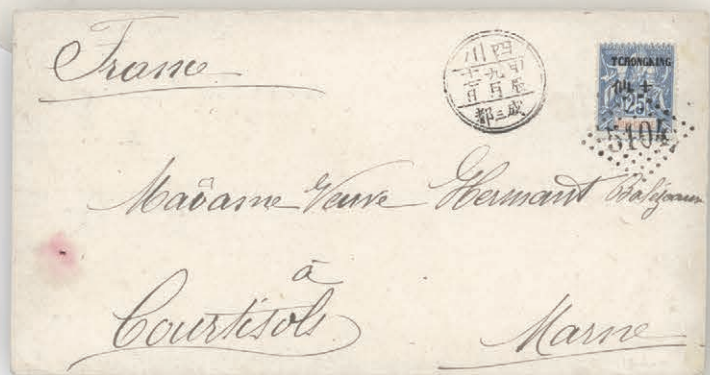 France
四川
辰月日
成三都
TCHONGKING
25
5104
Madame Veuve Hermant
à
Courtisols Marne